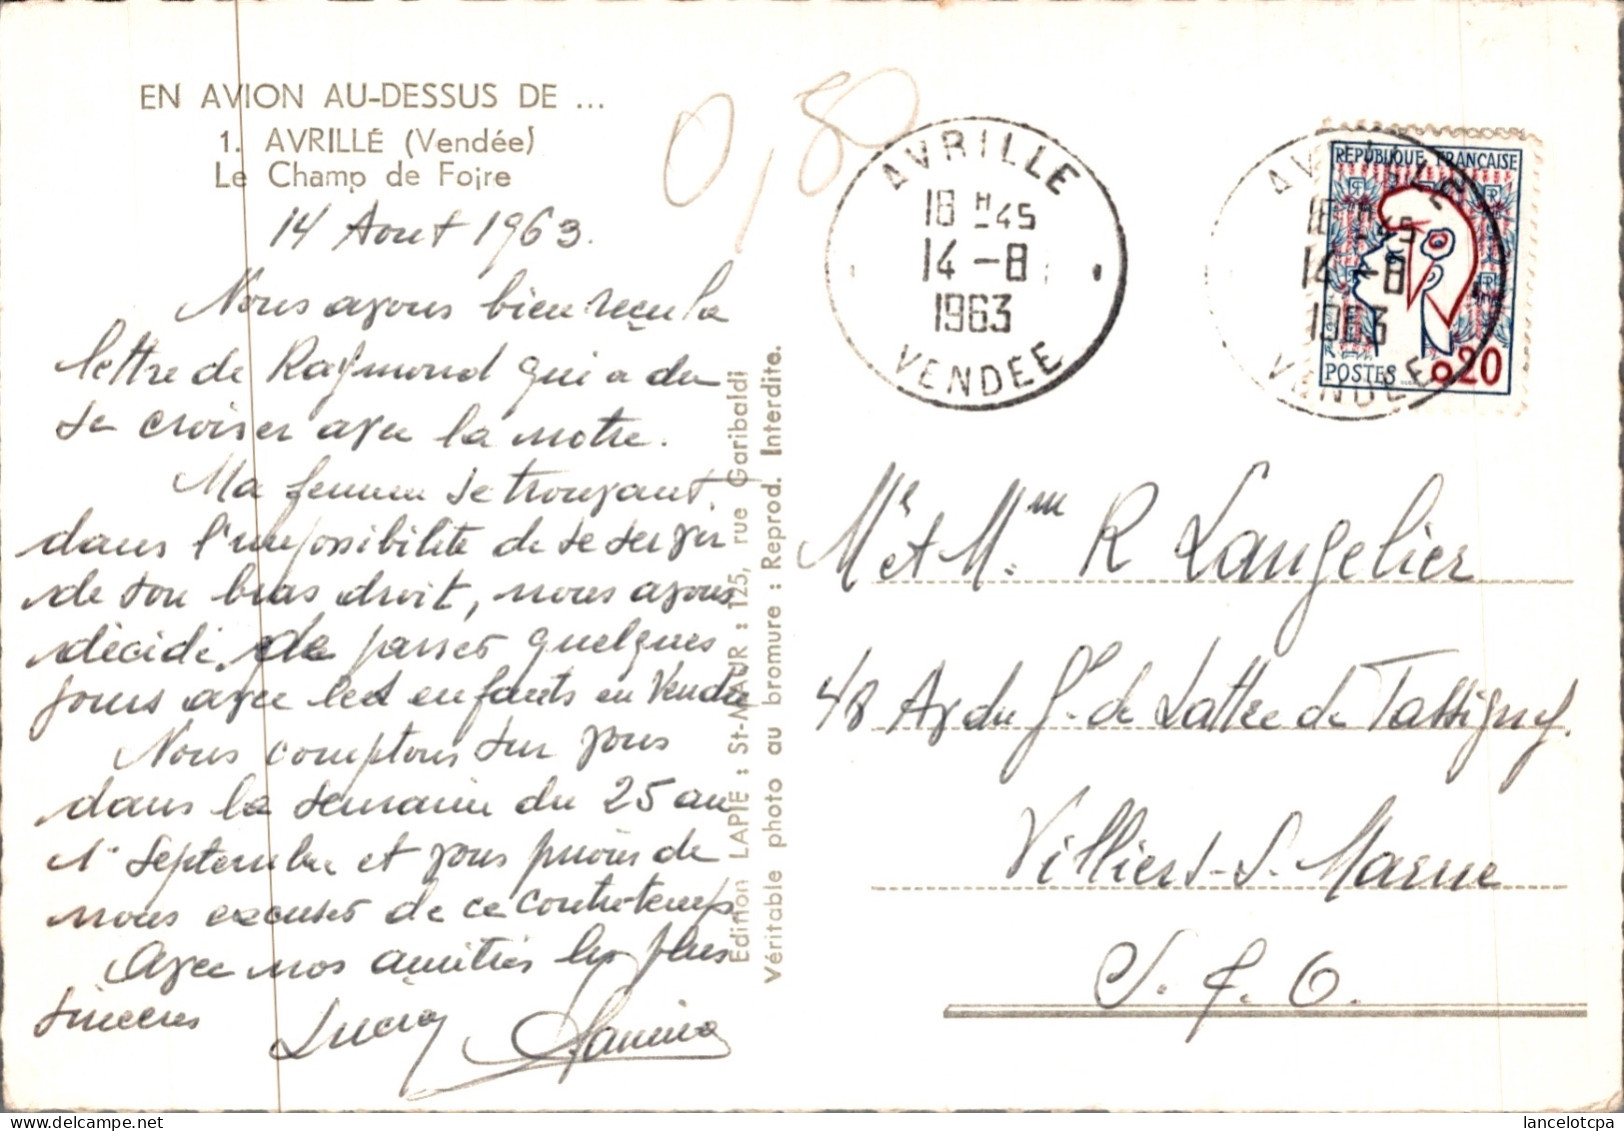 EN AVION AU-DESSUS DE ...
1. AVRILLÉ (Vendée)
Le Champ de Foire
0,80
14 Aout 1963.
Nous avons bien reçu la
lettre de Raymond qui a du
se croiser avec la notre.
Ma femme se trouvant
dans l'impossibilité de se servir
de son bras droit, nous avons
décidé de passer quelques
jours avec les enfants en Vendée
Nous comptons sur vous
dans la semaine du 25 au
1er Septembre et vous prions de
nous excuser de ce contre-temps
Avec nos amitiés les plus
sincères
Edition LAPIE : St-MAUR : 125, rue Garibaldi
Véritable photo au bromure : Reprod. Interdite.
AVRILLE
18 H 45
14 - 8
1963
VENDEE
AVRILLE
18 H 45
14 - 8
1963
VENDEE
REPUBLIQUE FRANCAISE
POSTES 0,20
Mr et Mme R Langelier
48 Av du Gl de Lattre de Tassigny.
Villiers-s-Marne
S. & O.
lancelotcpa